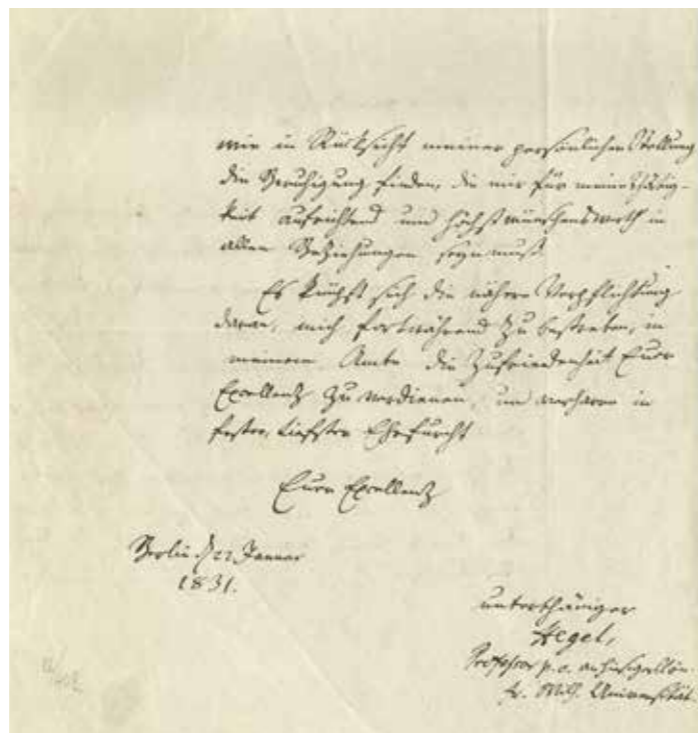 mir in Rücksicht meiner persönlichen Stellung
die Beruhigung finden, die mir für meine Thätig-
keit aufrichtend und höchst wünschenswerth in
allen Beziehungen seyn muß.
Es knüpft sich die nähere Verpflichtung
daran, mich fortwährend zu bestreben, in
meinem Amte die Zufriedenheit Eurer
Excellenz zu verdienen, und verharre in
tiefster Ehrfurcht
Eurer Excellenz
Berlin d 22 Januar
1831.
unterthäniger
Hegel,
Professor p. o. an hiesiger Kön.
Fr. Wilh. Universität.